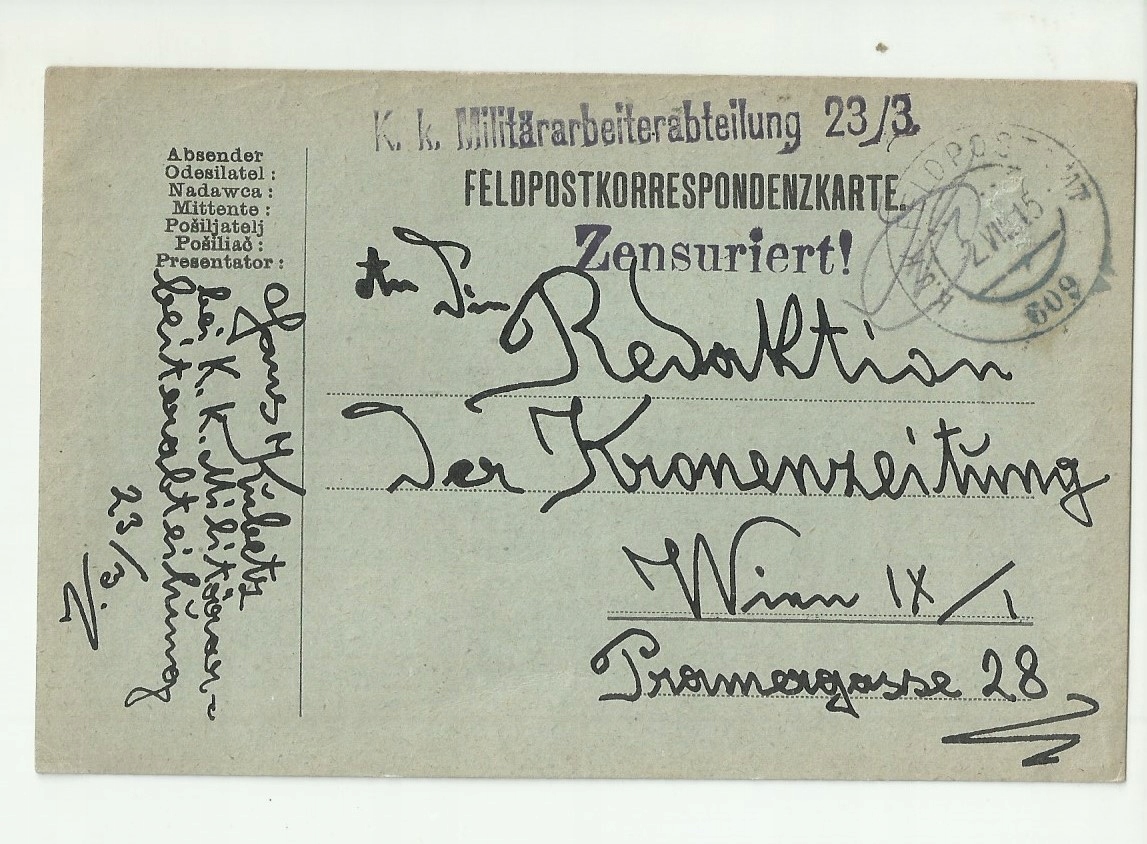 K. k. Militärarbeiterabteilung 23/3.
FELDPOSTKORRESPONDENZKARTE.
Zensuriert!
K.u.K. FELDPOSTAMT
2.VIII.15
609
Absender
Odesilatel :
Nadawca :
Mittente :
Pošiljatelj
Pošiliač :
Presentator :
An Die
Redaktion
Der Kronenzeitung
Wien IX/1
Pramergasse 28
Hans Kubetz
bei K. K. Militärar-
beiterabteilung
23/3.